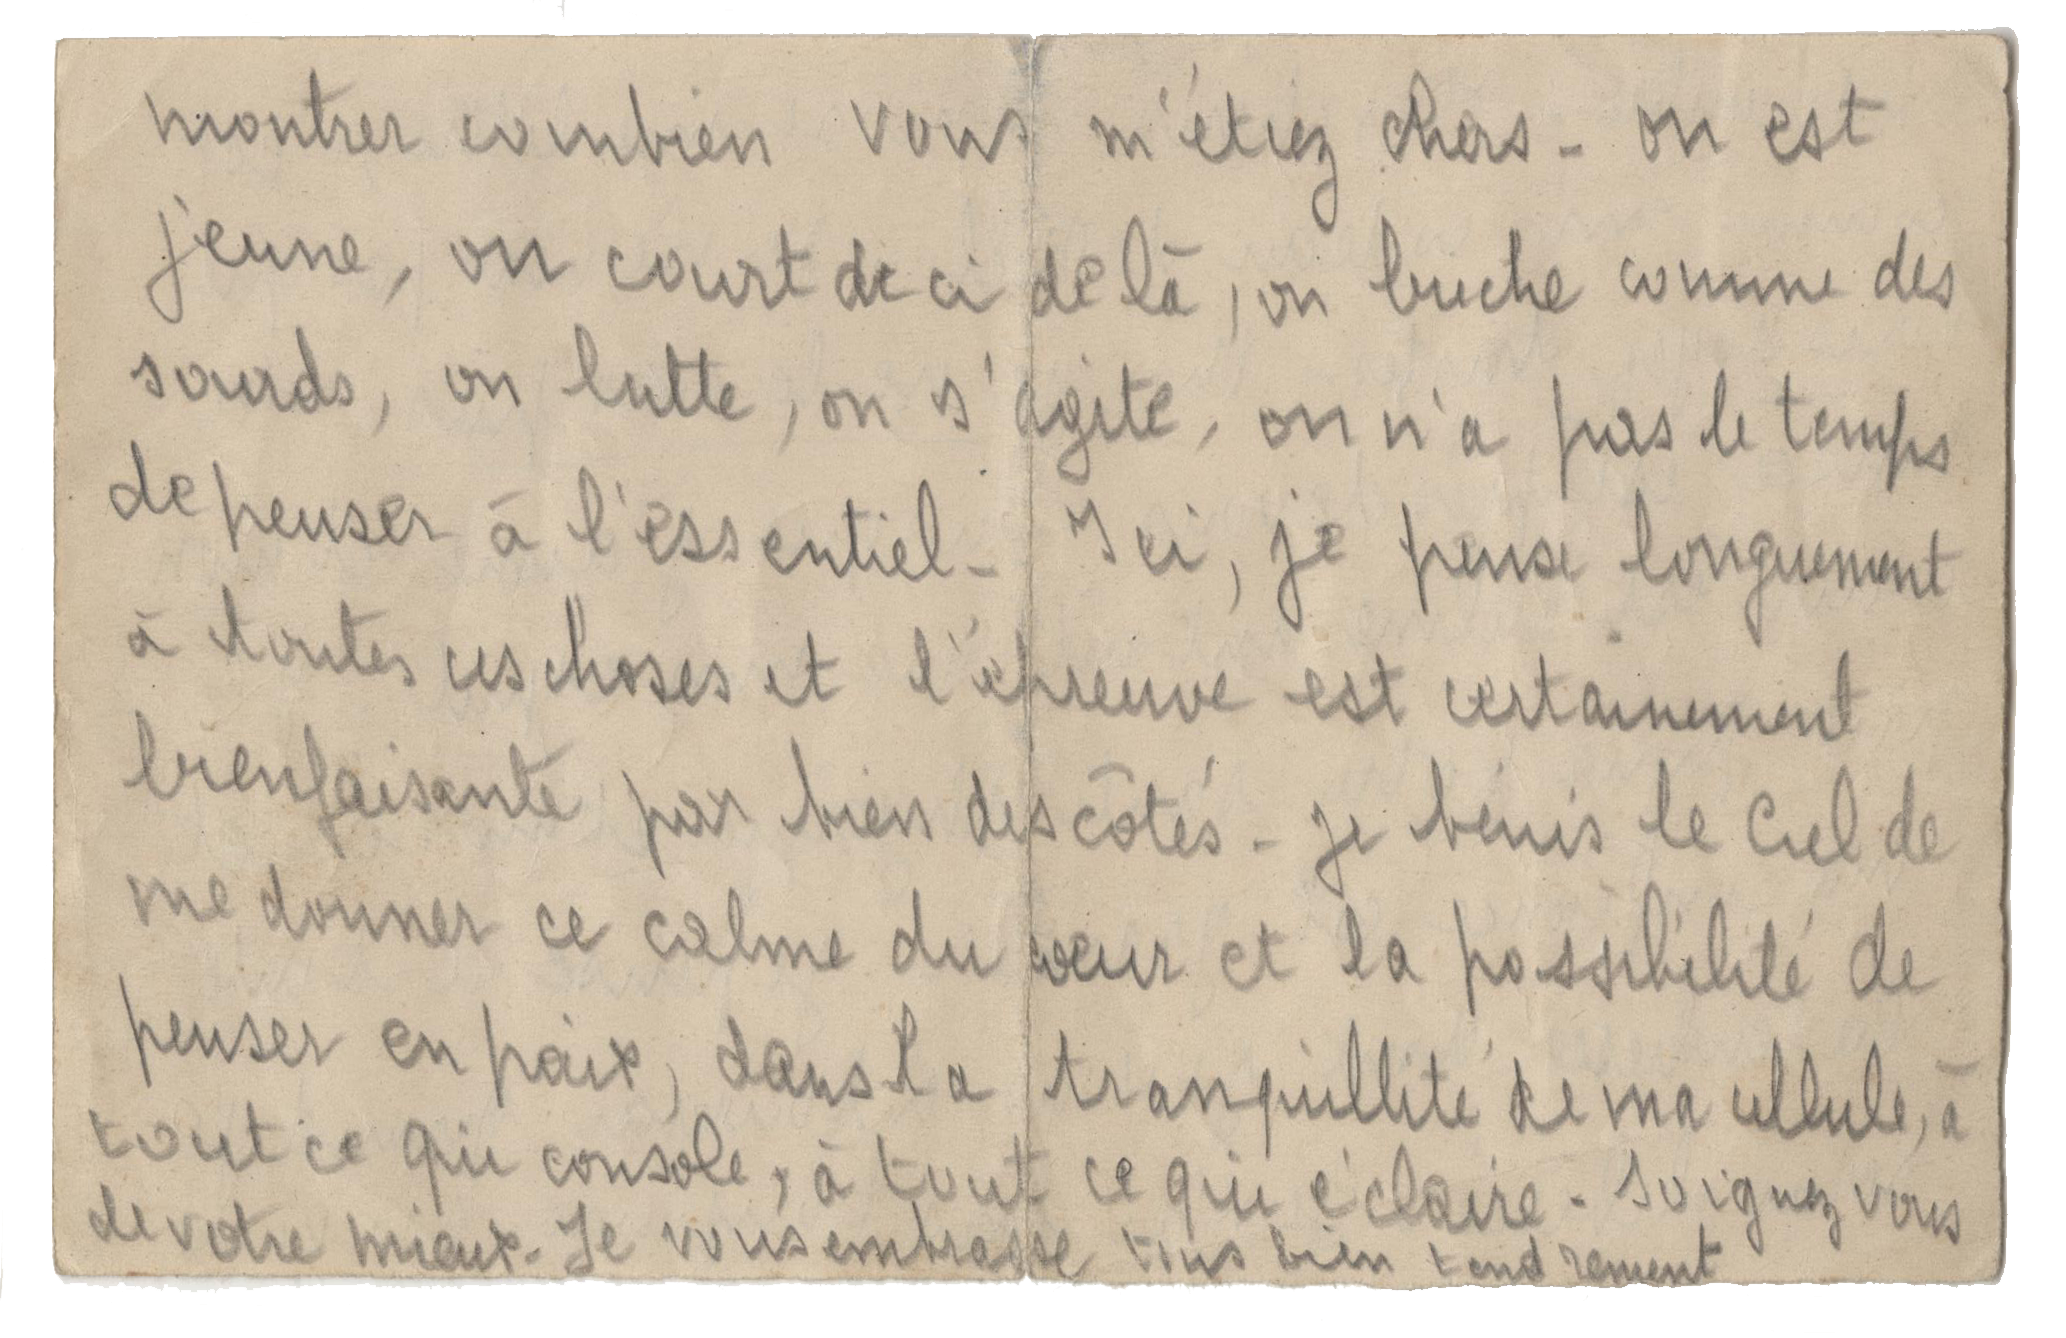 montrer combien vous m'étiez chers - on est
jeune, on court de ci de là, on buche comme des
sourds, on lutte, on s'agite, on n'a pas le temps
de penser à l'essentiel - Ici, je pense longuement
à toutes ces choses et l'épreuve est certainement
bienfaisante par bien des côtés - je bénis le Ciel de
me donner ce calme du cœur et la possibilité de
penser en paix, dans la tranquillité de ma cellule, à
tout ce qui console, à tout ce qui éclaire - Soignez vous
de votre mieux - Je vous embrasse tous bien tendrement